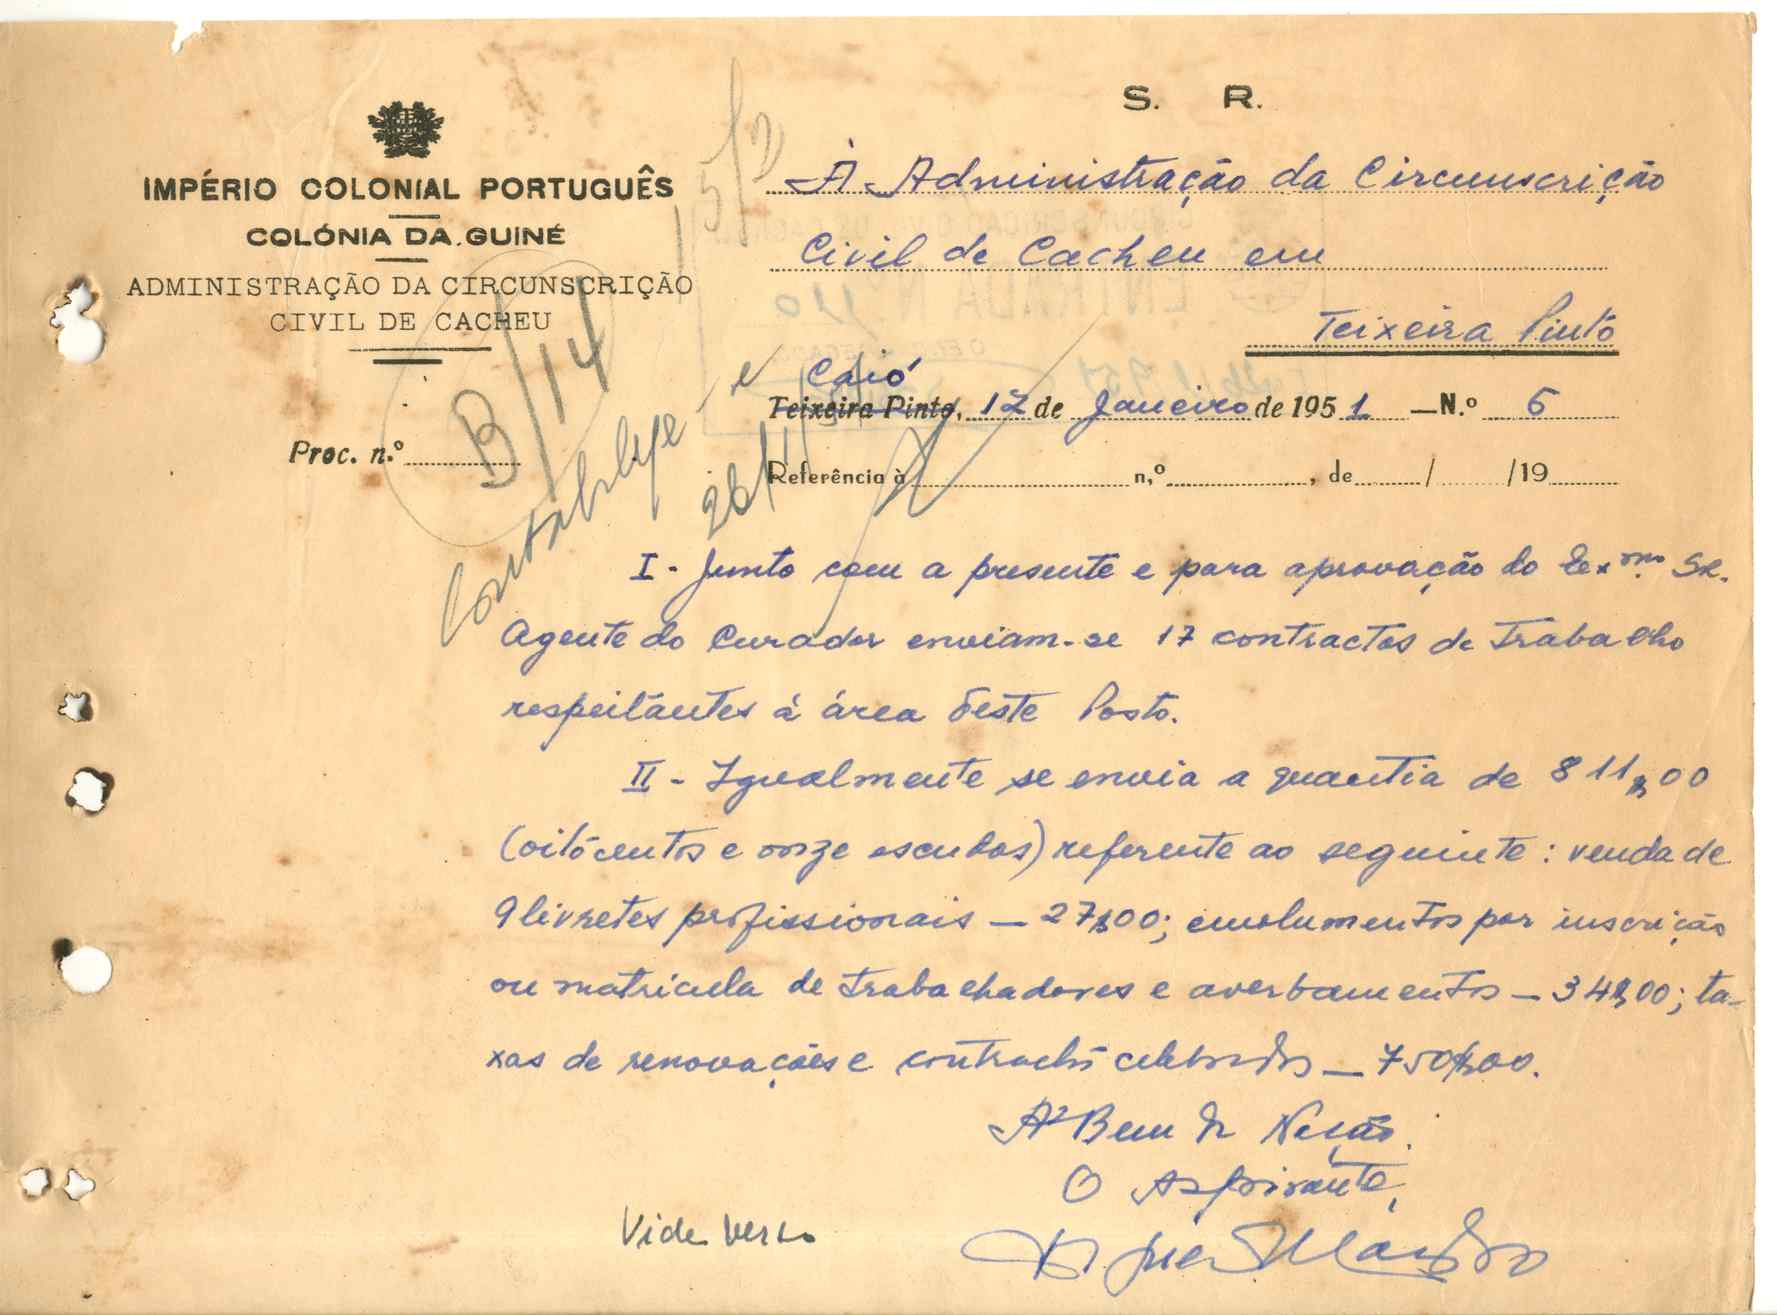 S. R.
IMPÉRIO COLONIAL PORTUGUÊS
COLÓNIA DA GUINÉ
ADMINISTRAÇÃO DA CIRCUNSCRIÇÃO
CIVIL DE CACHEU
B/14
Proc. n.º
À Administração da Circunscrição
Civil de Cacheu em
Teixeira Pinto
Caió
Teixeira Pinto, 17 de Janeiro de 1951 — N.º 5
Referência à n.º , de / /19
I - Junto com a presente e para aprovação do Exmo. Sr.
Agente do Curador enviam-se 17 contractos de trabalho
respeitantes á área deste Posto.
II - Igualmente se envia a quantia de 811$00
(oitocentos e onze escudos) referente ao seguinte: venda de
9 livretes profissionais — 27$00; emolumentos por inscrição
ou matricula de trabalhadores e averbamentos — 34$00; ta-
xas de renovações e contractos celebrados — 750$00.
A Bem da Nação.
O Aspirante,
Vide verso